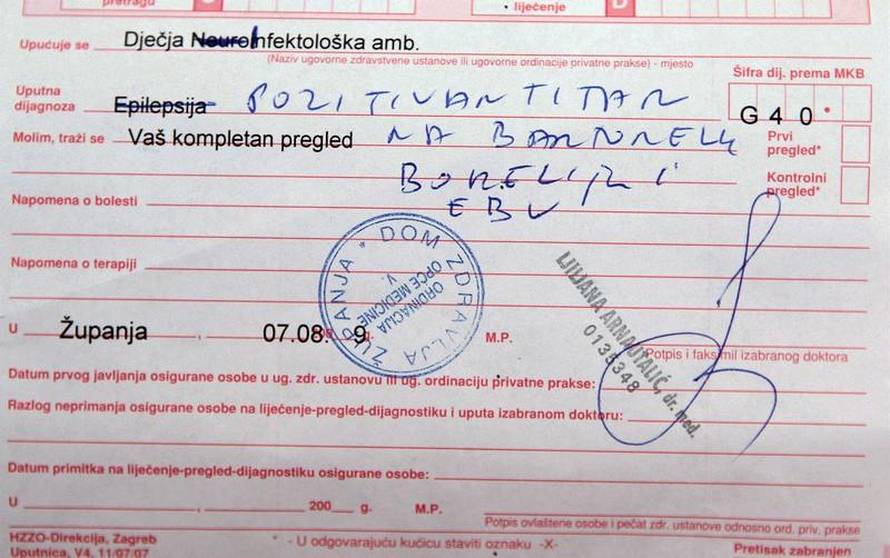 pretragu
liječenje D
Upućuje se Dječja Neuroinfektološka amb.
(Naziv ugovorne zdravstvene ustanove ili ugovorne ordinacije privatne prakse) - mjesto
Šifra dij. prema MKB
Uputna dijagnoza Epilepsija POZITIVAN TITAR G 4 0 •
Molim, traži se Vaš kompletan pregled NA BARTONELU Prvi pregled*
BORELIJU i Kontrolni pregled*
Napomena o bolesti EBV
Napomena o terapiji
DOM ZDRAVLJA * ŽUPANJA
ORDINACIJA OPĆE MEDICINE V.
U Županja, 07.08. 9. M.P.
LJILJANA ARNAUTALIĆ, dr. med.
0135348
Potpis i faksimil izabranog doktora
Datum prvog javljanja osigurane osobe u ug. zdr. ustanovu ili ug. ordinaciju privatne prakse:
Razlog neprimanja osigurane osobe na liječenje-pregled-dijagnostiku i uputa izabranom doktoru:
Datum primitka na liječenje-pregled-dijagnostiku osigurane osobe:
U , 200 g. M.P.
Potpis ovlaštene osobe i pečat zdr. ustanove odnosno ord. priv. prakse
HZZO-Direkcija, Zagreb * - U odgovarajuću kućicu staviti oznaku -X-
Uputnica, V4, 11/07/07 Pretisak zabranjen